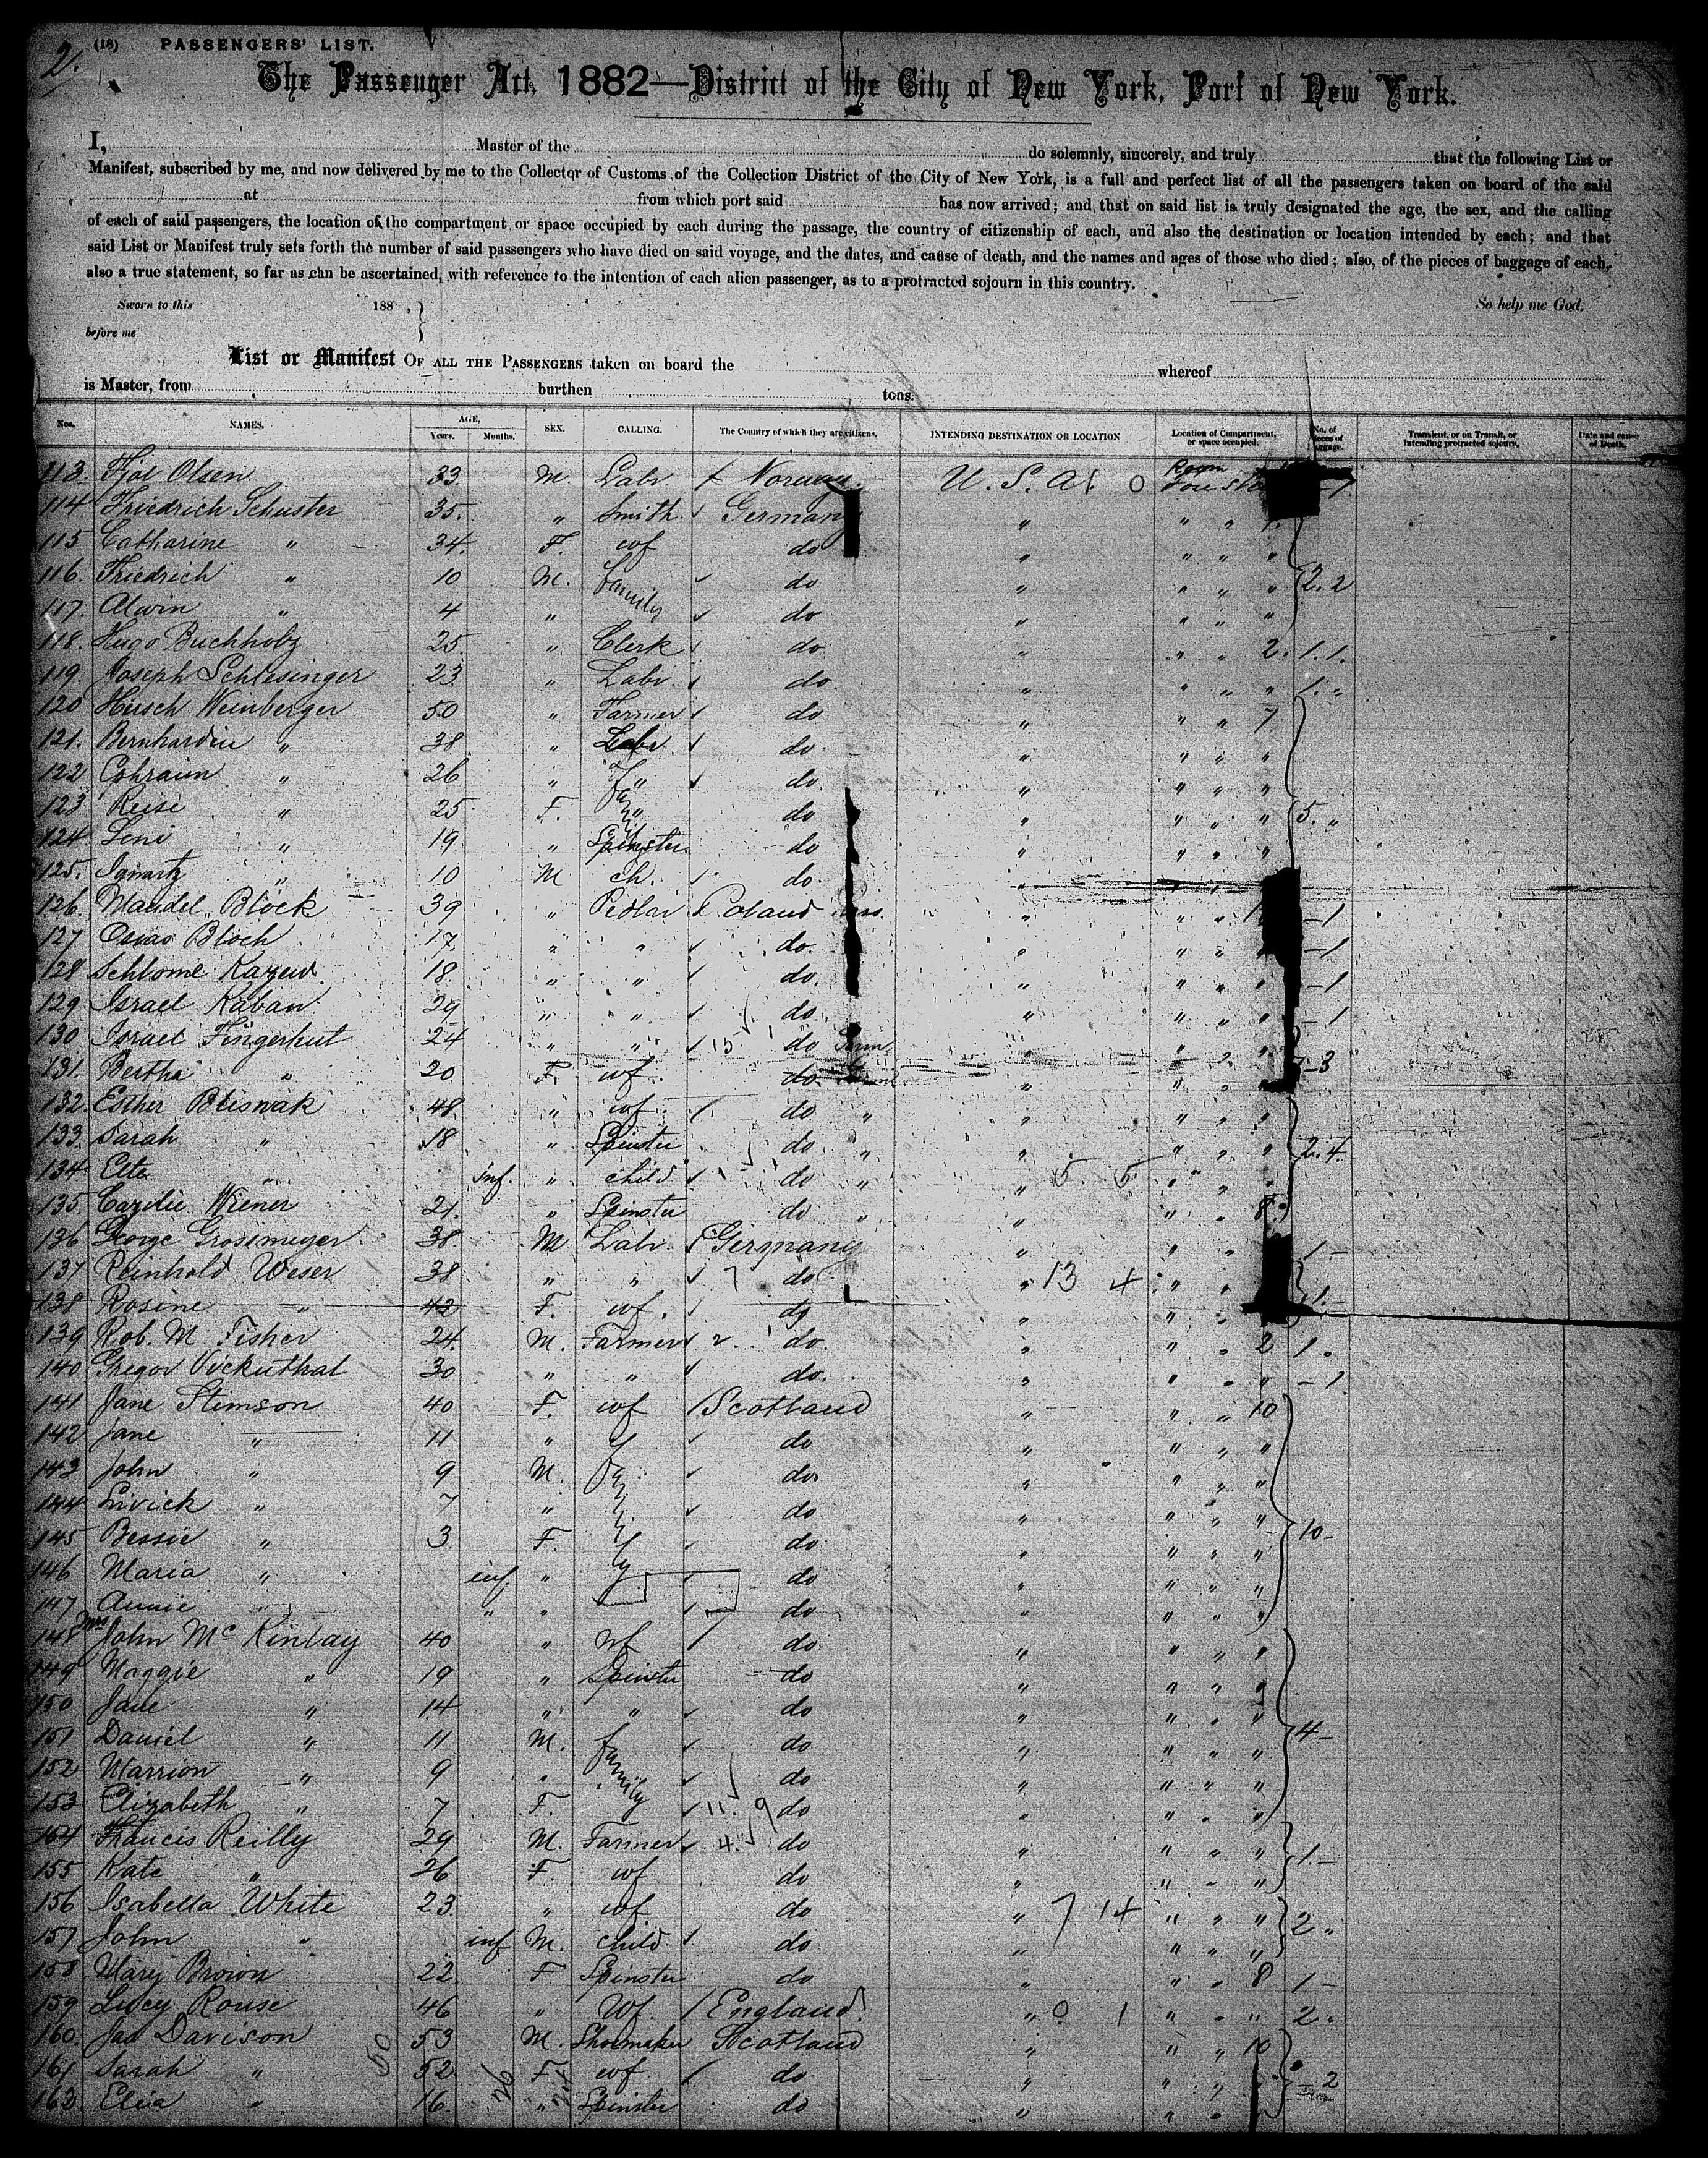 2.
(18) PASSENGERS' LIST.
The Passenger Act, 1882—District of the City of New York, Port of New York.
I, Master of the do solemnly, sincerely, and truly that the following List or
Manifest, subscribed by me, and now delivered by me to the Collector of Customs of the Collection District of the City of New York, is a full and perfect list of all the passengers taken on board of the said
at from which port said has now arrived; and that on said list is truly designated the age, the sex, and the calling
of each of said passengers, the location of the compartment or space occupied by each during the passage, the country of citizenship of each, and also the destination or location intended by each; and that
said List or Manifest truly sets forth the number of said passengers who have died on said voyage, and the dates, and cause of death, and the names and ages of those who died; also, of the pieces of baggage of each,
also a true statement, so far as can be ascertained, with reference to the intention of each alien passenger, as to a protracted sojourn in this country.
Sworn to this 188 , } So help me God.
before me
List or Manifest OF ALL THE PASSENGERS taken on board the whereof
is Master, from burthen tons.
Nos. NAMES. AGE. Years. Months. SEX. CALLING. The Country of which they are citizens. INTENDING DESTINATION OR LOCATION Location of Compartment, or space occupied. No. of pieces of baggage. Transient, or on Transit, or intending protracted sojourn. Date and cause of Death.
113. Olsen 33. M. Labr Norway. U.S.A. 0 Room Fore
114 Friedrich Schuster 35. " Smith Germany " " " 1.
115 Catharine " 34. F. wf do " " " "
116. Friedrich " 10 M. family do " " " " 2.2
117. Alwin " 4 " do " " " "
118. Hugo Buchholz 25. " Clerk do " " " 2. 1.1.
119. Joseph Schlesinger 23 " Labr. do. " " " " 1. "
120 Hirsch Weinberger 50 " Farmer do " " " 7
121. Bernhardin " 38 " Labr. do. " " " "
122 Ephraim " 26 " " do. " " " "
123 Reise " 25. F. " do " " " " 5. "
124 Leni " 19 " Spinster do " " " "
125. Ignartz " 10 M ch. do. "
126. Mandel Block 39 " Pedlar Poland Russ. " " " –1
127 Osias Bloch 17 " " do. " " " –1
128 Schlome 18. " " do. " " " –1
129 Israel Kaban 29 " " do. " " " –1
130 Israel Fingerhut 24 " " 15 do "
131. Bertha " 20 F. wf. do. " " " –3
132. Esther Blisnak 48. " wf. do " " " " "
133. Sarah " 18 " Spinster do " " " " " 2.4.
134 Elte " inf. " child do " " 5 5 " "
135. Cazilie Wiener 21. " Spinster do " " " " 8.
136 George Grosimeyer 38. M Labr. Germany " " " 1 –
137 Reinhold Weser 38 " " 7 do " 13 4 " "
138 Rosine " 42 F. wf. do " " " 1. –
139 Rob. M. Fisher 24. M. Farmer 2. do. " " " 2 1 "
140 Gregor 30 " " do. " " " " – 1
141 Jane Stimson 40 F. wf Scotland " " " 10
142 Jane " 11 " do " " " "
143 John " 9 M. do " " " "
144 " 7 " do " " " "
145 Bessie " 3 F. do " " " " 10 –
146 Maria " inf " do " " " "
147 Annie " " " do " " " "
148 Mrs John McKinlay 40 " Wf do " " " "
149 Maggie " 19 " Spinster do " " " "
150 Jane " 14 " " do " " " "
151 Daniel " 11 M. family do " " " " 4 –
152 Marrion " 9 " do " " " "
153 Elizabeth " 7 F. 11. 9 do " " " "
154 Francis Reilly 29 M. Farmer 4. do " " " "
155 Kate " 26 F. wf do " " " " 1. –
156 Isabella White 23. " wf do " 7 14 " " "
157 John " inf M. child do " " " " 2 "
158 Mary Brown 22 F Spinster do " " " 8 1 –
159 Lucy Rouse 46 " Wf. England " 0 1 " " " 2.
160. Jas Davison 53 M. Shoemaker Scotland " " " 10
161 Sarah " 52 F wf. do " " " – 2
162 " 16. " Spinster do " " "
50 26